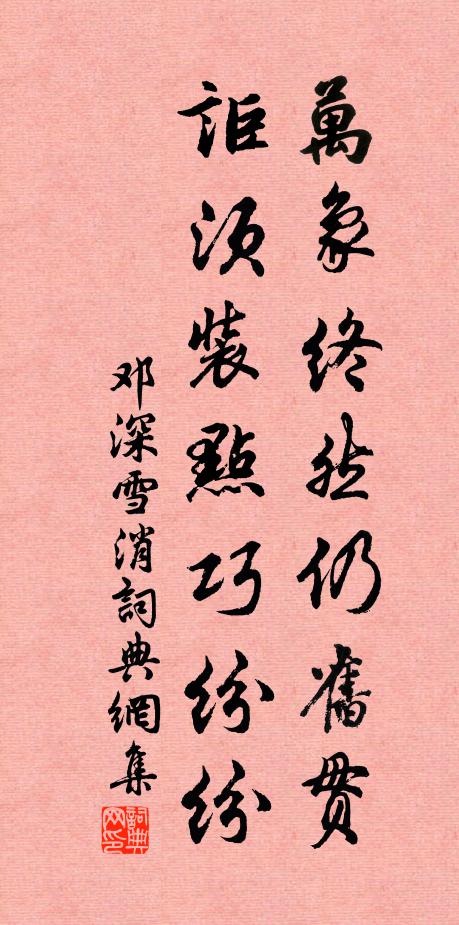 萬象終然仍舊貫
詎須裝點巧紛紛
邓深雪消詞典網集
詞典网印